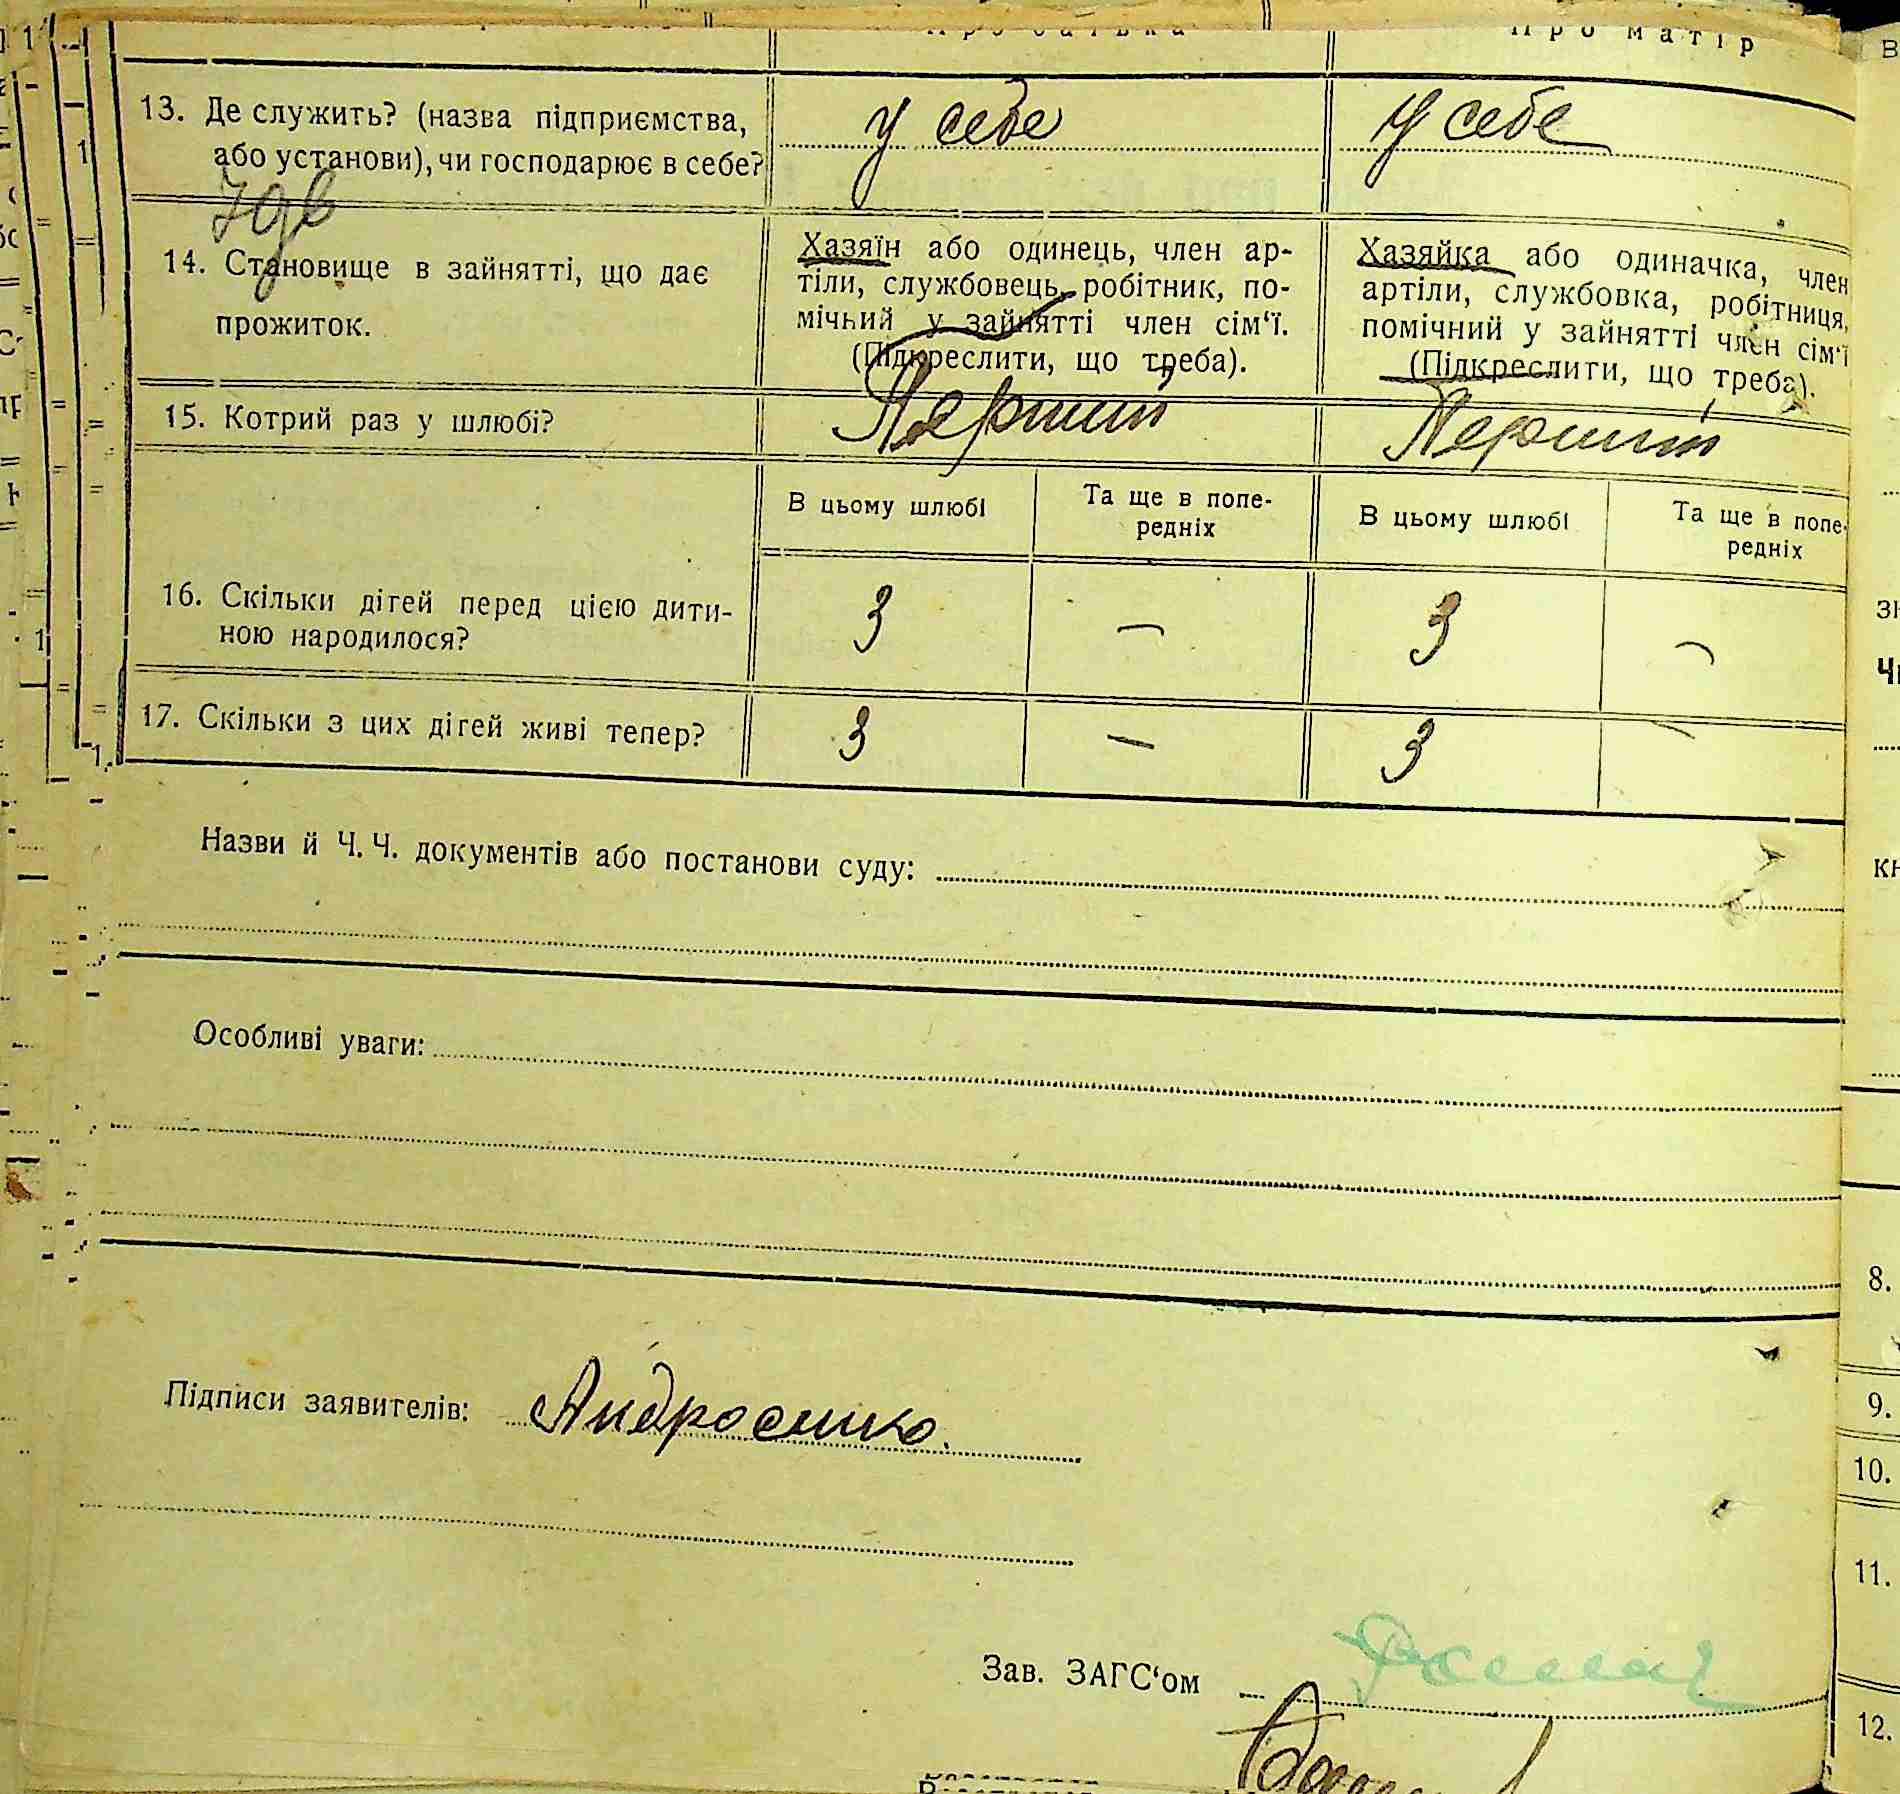 Про батька Про матір
13. Де служить? (назва підприємства, у себе У себе
або установи), чи господарює в себе?
14. Становище в зайнятті, що дає Хазяїн або одинець, член ар- Хазяйка або одиначка, член
прожиток. тіли, службовець, робітник, по- артіли, службовка, робітниця,
мічний у зайнятті член сім‘ї. помічний у зайнятті член сім‘ї
(Підкреслити, що треба). (Підкреслити, що треба).
15. Котрий раз у шлюбі? Перший Перший
В цьому шлюбі Та ще в попе- В цьому шлюбі Та ще в попе-
редніх редніх
16. Скільки дітей перед цією дити- 3 — 3 —
ною народилося?
17. Скільки з цих дітей живі тепер? 3 — 3 —
Назви й Ч. Ч. документів або постанови суду:
Особливі уваги:
Підписи заявителів: Андросенко.
Зав. ЗАГС‘ом
8.
9.
10.
11.
12.